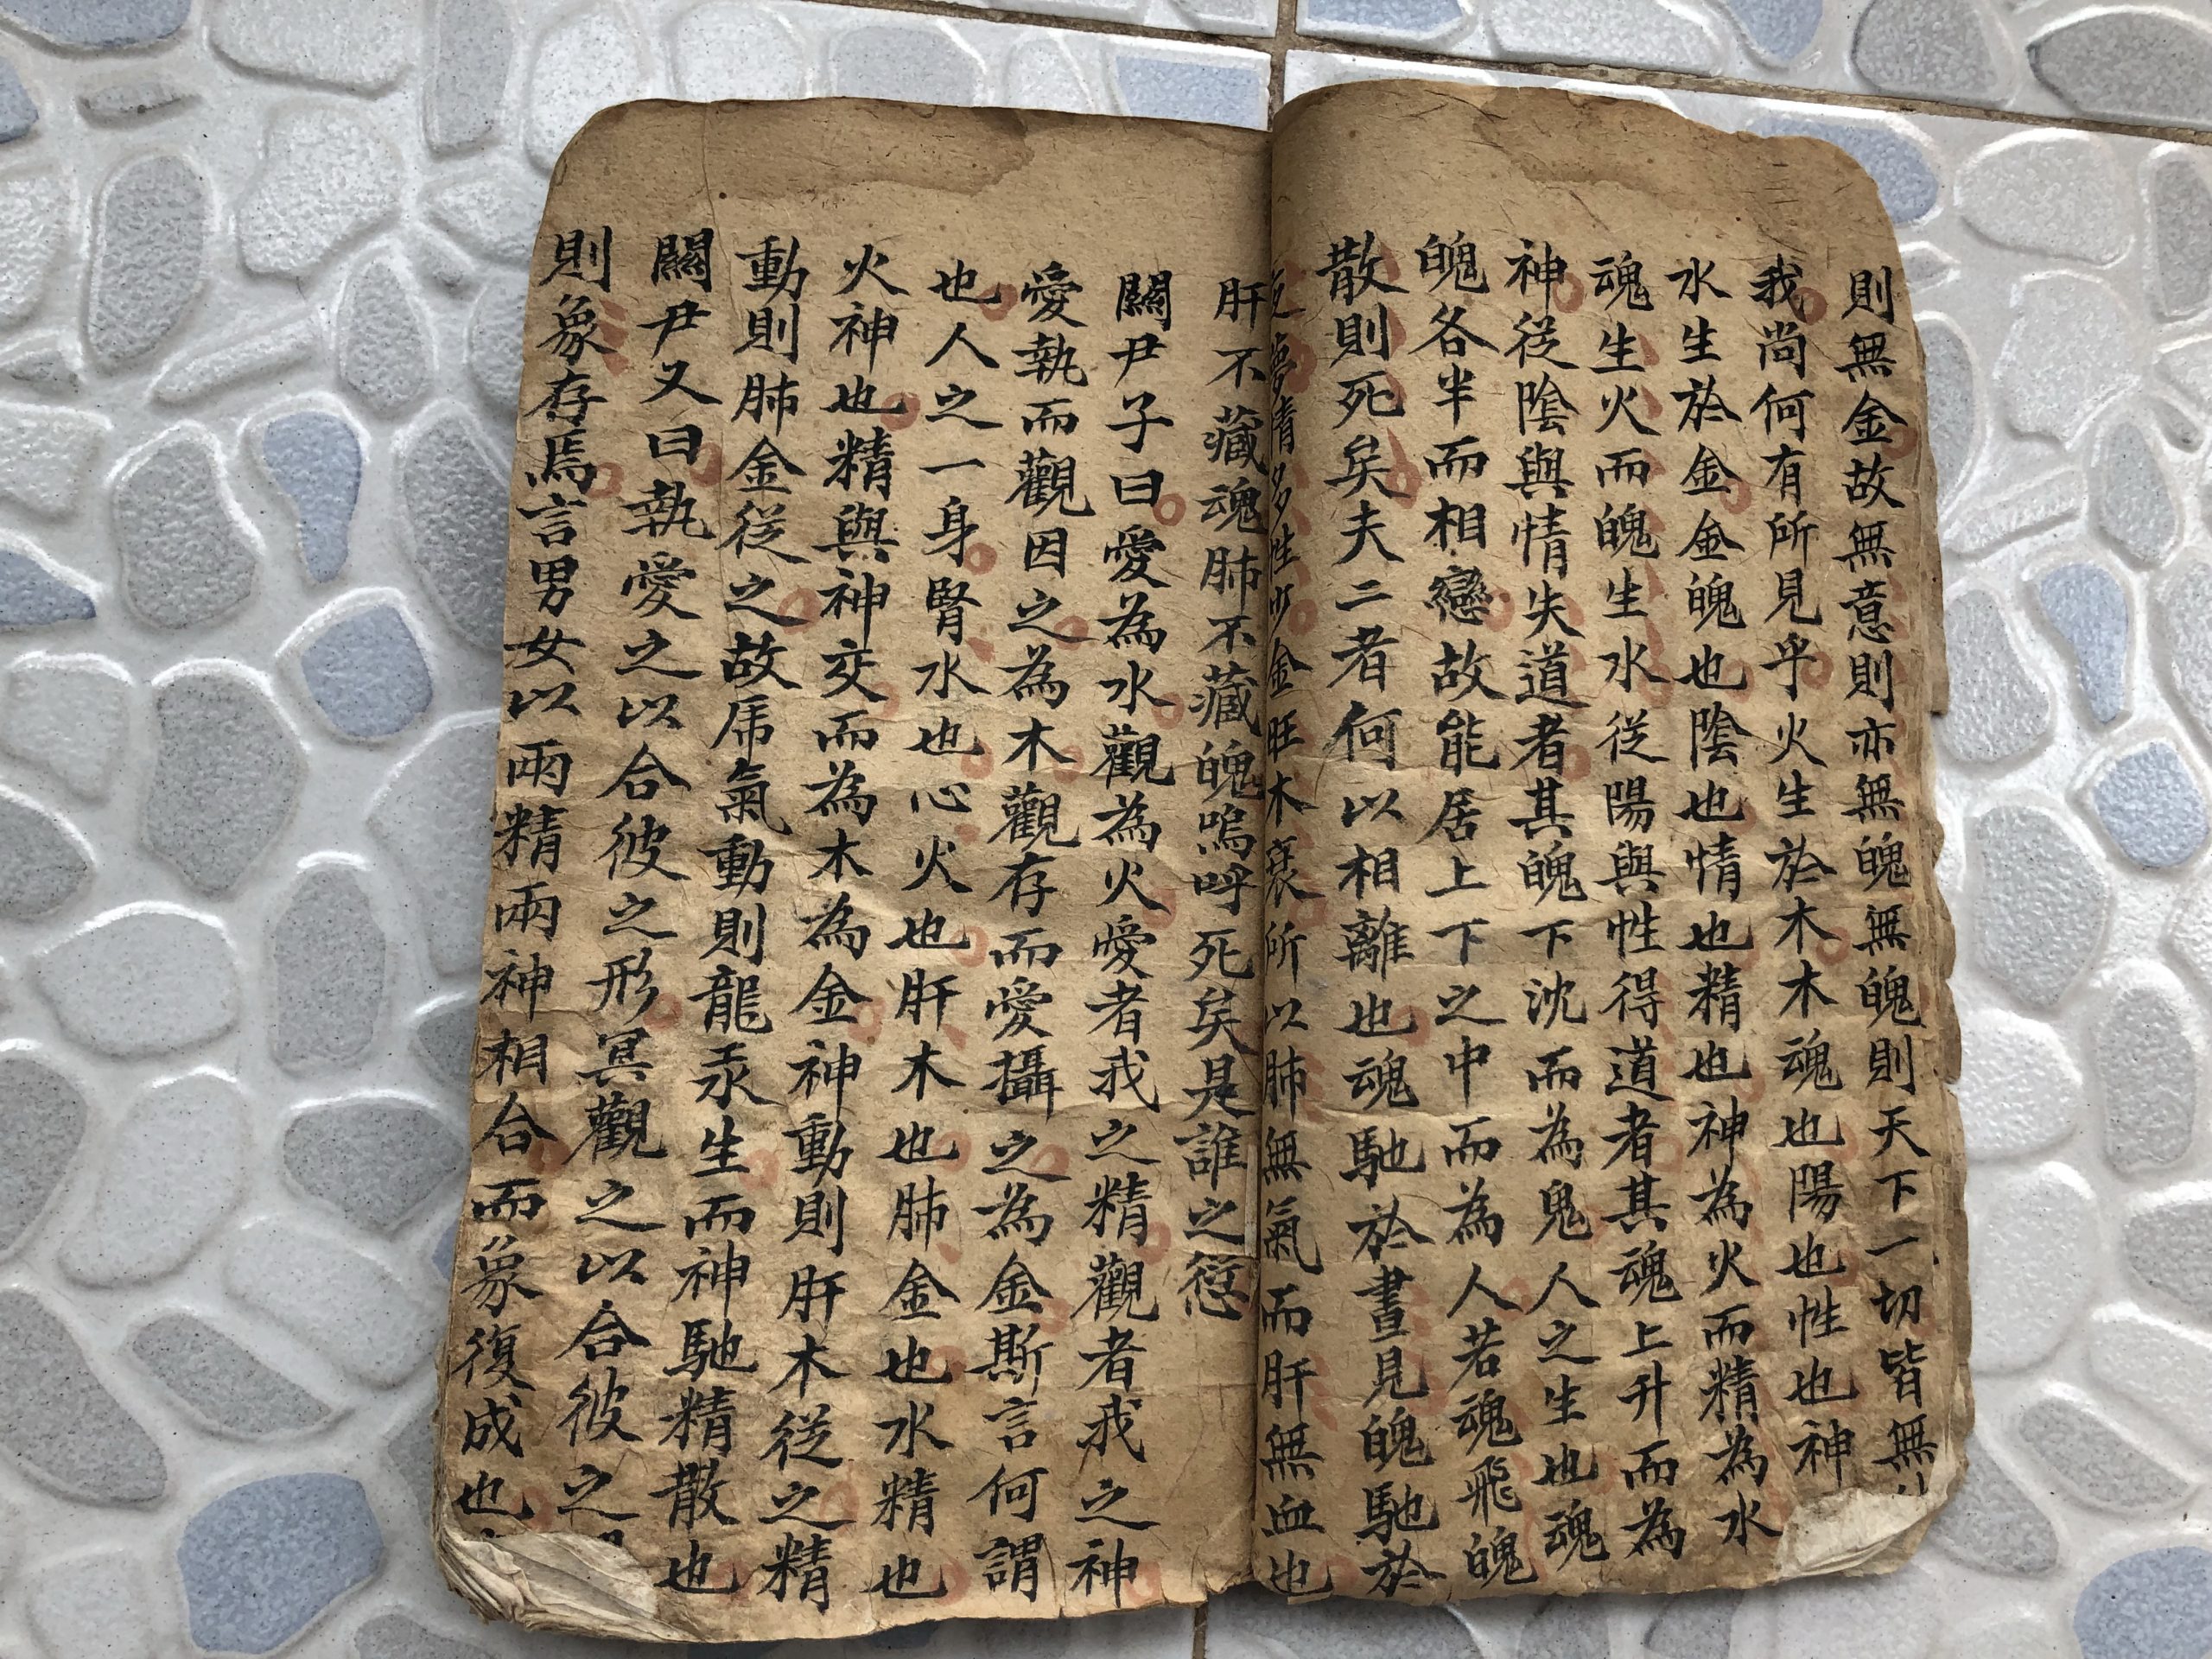 則無金故無意則亦無魄無魄則天下一切皆無
我尚何有所見乎火生於木木魂也陽也性也神
水生於金金魄也陰也情也精也神為火而精為水
魂生火而魄生水從陽與性得道者其魂上升而為
神從陰與情失道者其魄下沈而為鬼人之生也魂
魄各半而相戀故能居上下之中而為人若魂飛魄
散則死矣夫二者何以相離也魂馳於晝見魄馳於
夢情多性少金旺木衰所以肺無氣而肝無血也
肝不藏魂肺不藏魄嗚呼死矣是誰之愆
關尹子曰愛為水觀為火愛者我之精觀者我之神
愛執而觀因之為木觀存而愛攝之為金斯言何謂
也人之一身腎水也心火也肝木也肺金也水精也
火神也精與神交而為木為金神動則肝木從之精
動則肺金從之故虎氣動則龍汞生而神馳精散也
關尹又曰執愛之以合彼之形冥觀之以合彼之
則象存焉言男女以兩精兩神相合而象復成也